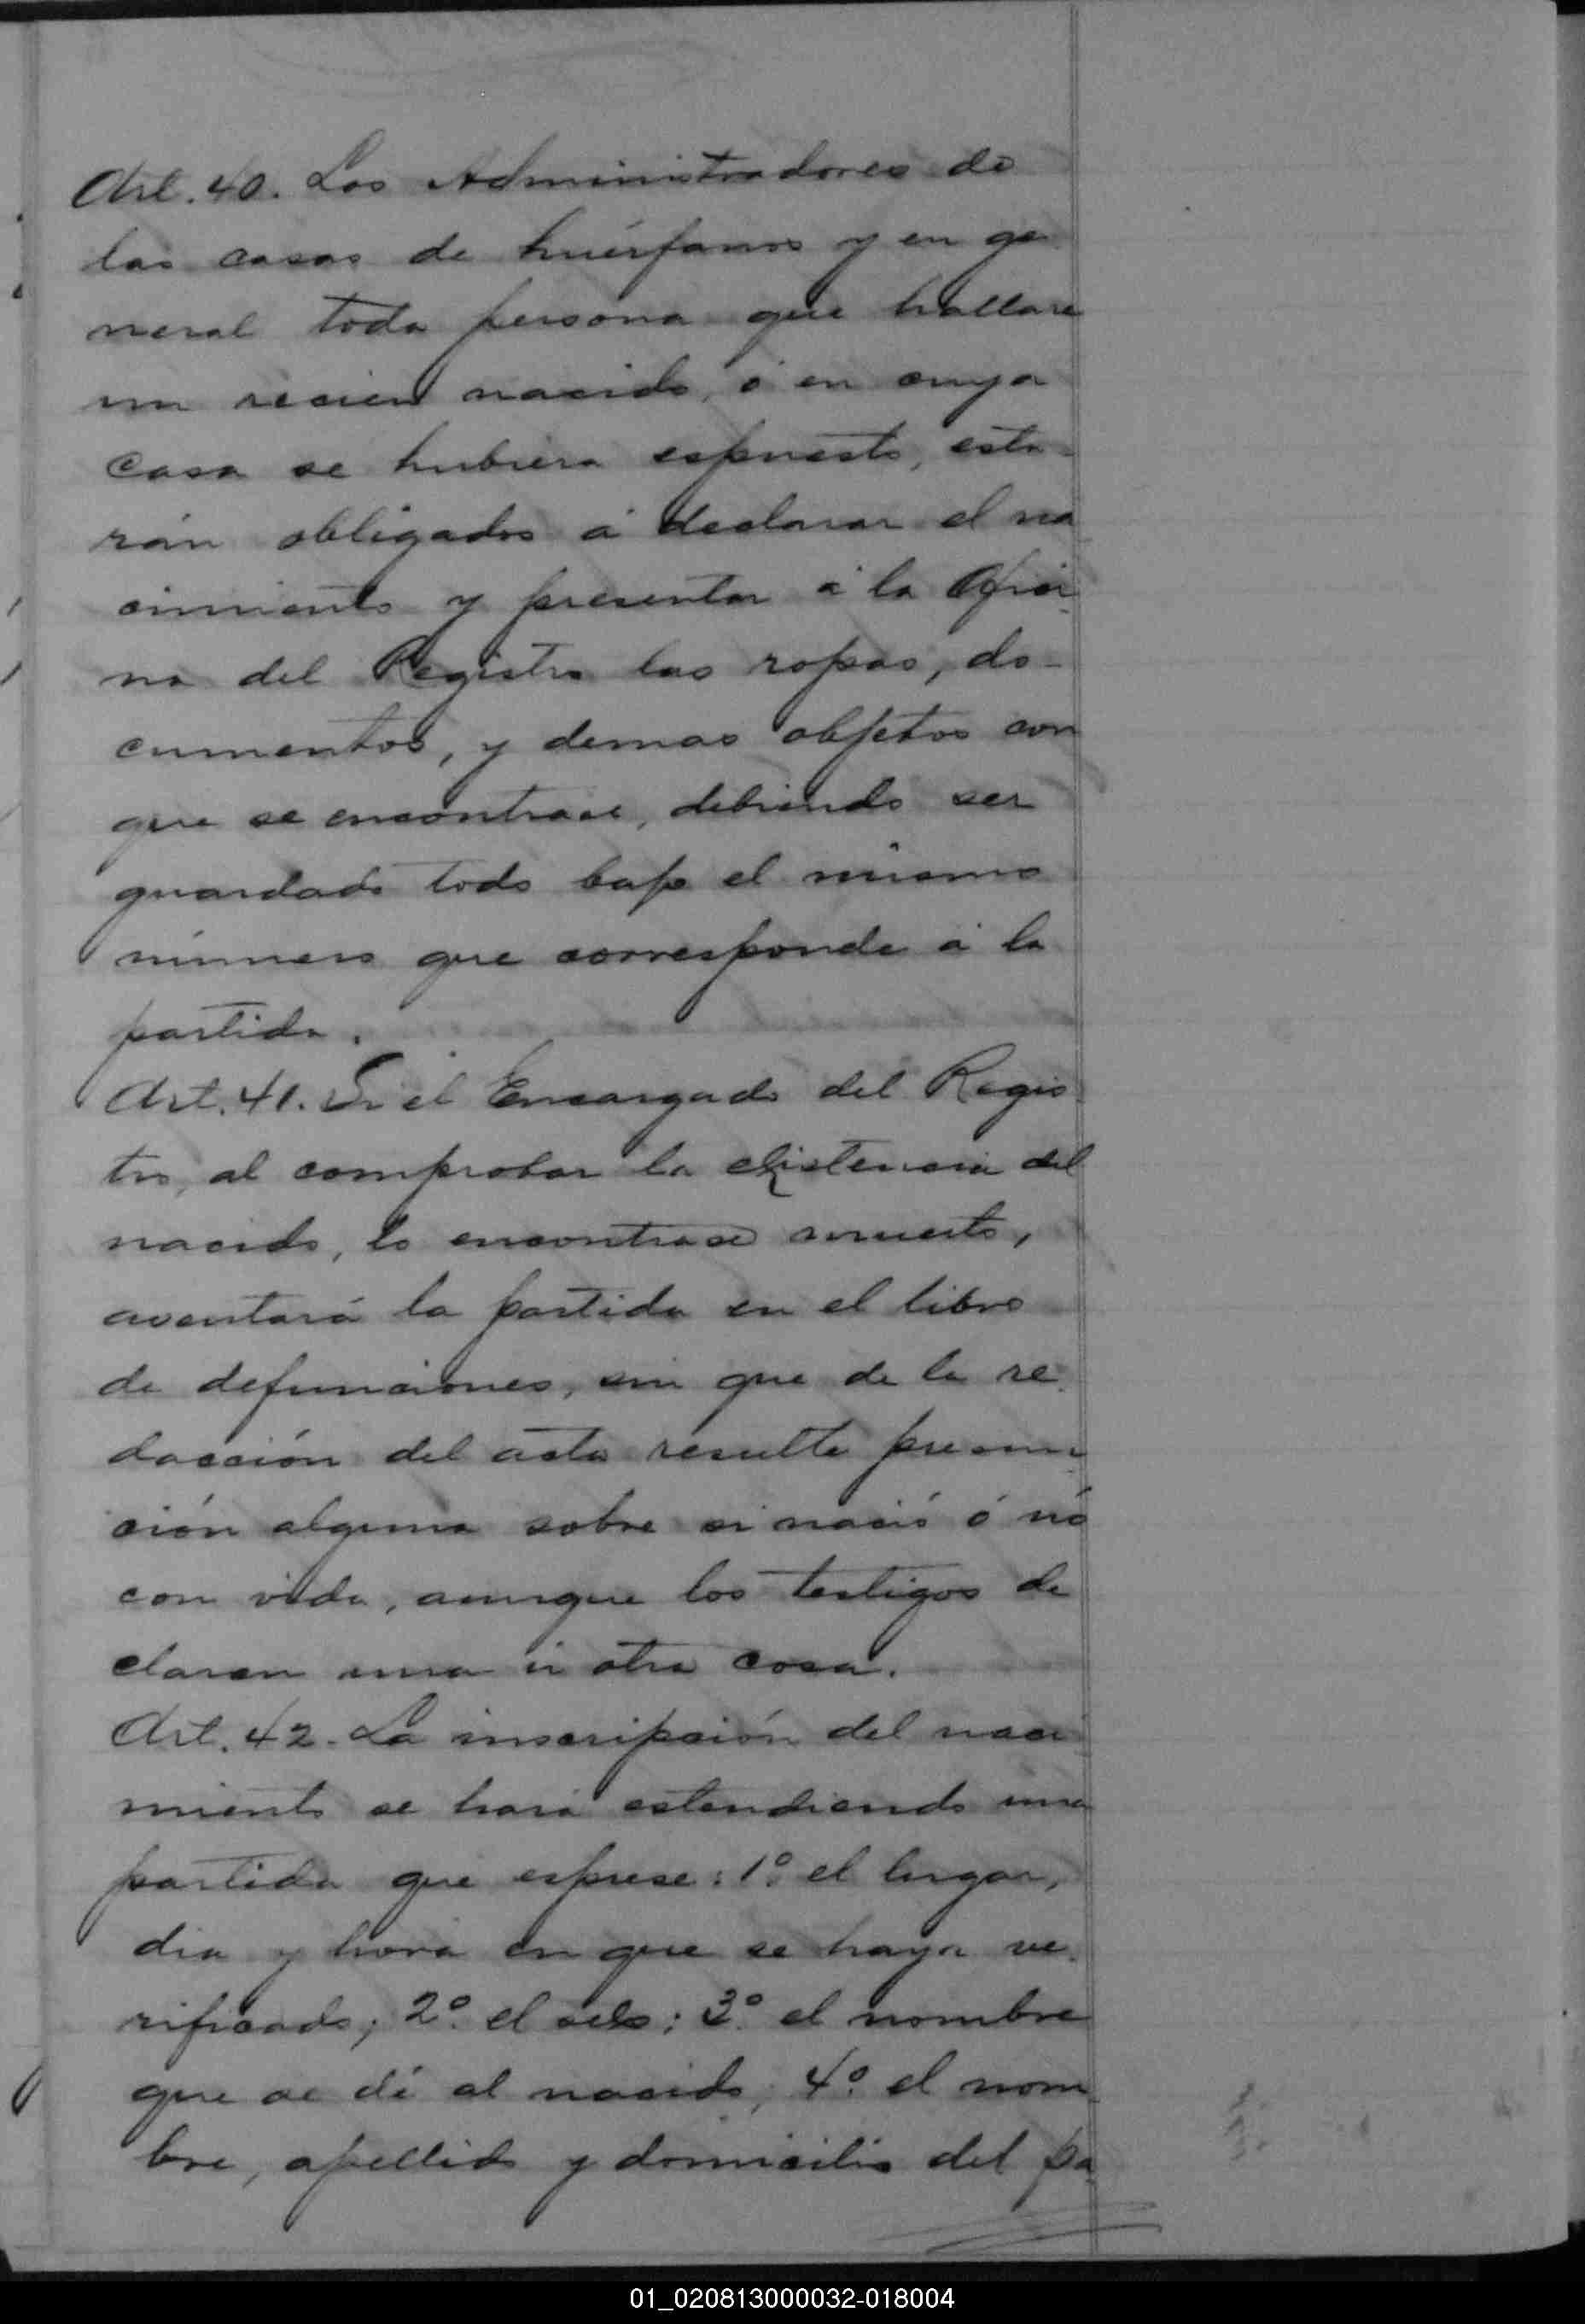 Art. 40. Los Administradores de
las casas de huérfanos y en ge
neral toda persona que hallare
un recien nacido, ó en cuya
casa se hubiera espuesto, esta-
rán obligados á declarar el na
cimiento y presentar á la Ofici
na del Registro las ropas, do-
cumentos, y demas objetos con
que se encontrase, debiendo ser
guardado todo bajo el mismo
número que corresponde á la
partida.
Art. 41. Si el Encargado del Regis
tro, al comprobar la existencia del
nacido, lo encontrase muerto,
asentará la partida en el libro
de defunciones, sin que de la re
dacción del acta resulte presun
ción alguna sobre si nació ó nó
con vida, aunque los testigos de
claren una ú otra cosa.
Art. 42. La inscripción del naci
miento se hará estendiendo una
partida que esprese: 1º. el lugar,
dia y hora en que se haya ve
rificado; 2º. el sexo; 3º. el nombre
que se dé al nacido; 4º. el nom
bre, apellido y domicilio del pa
01_020813000032-018004